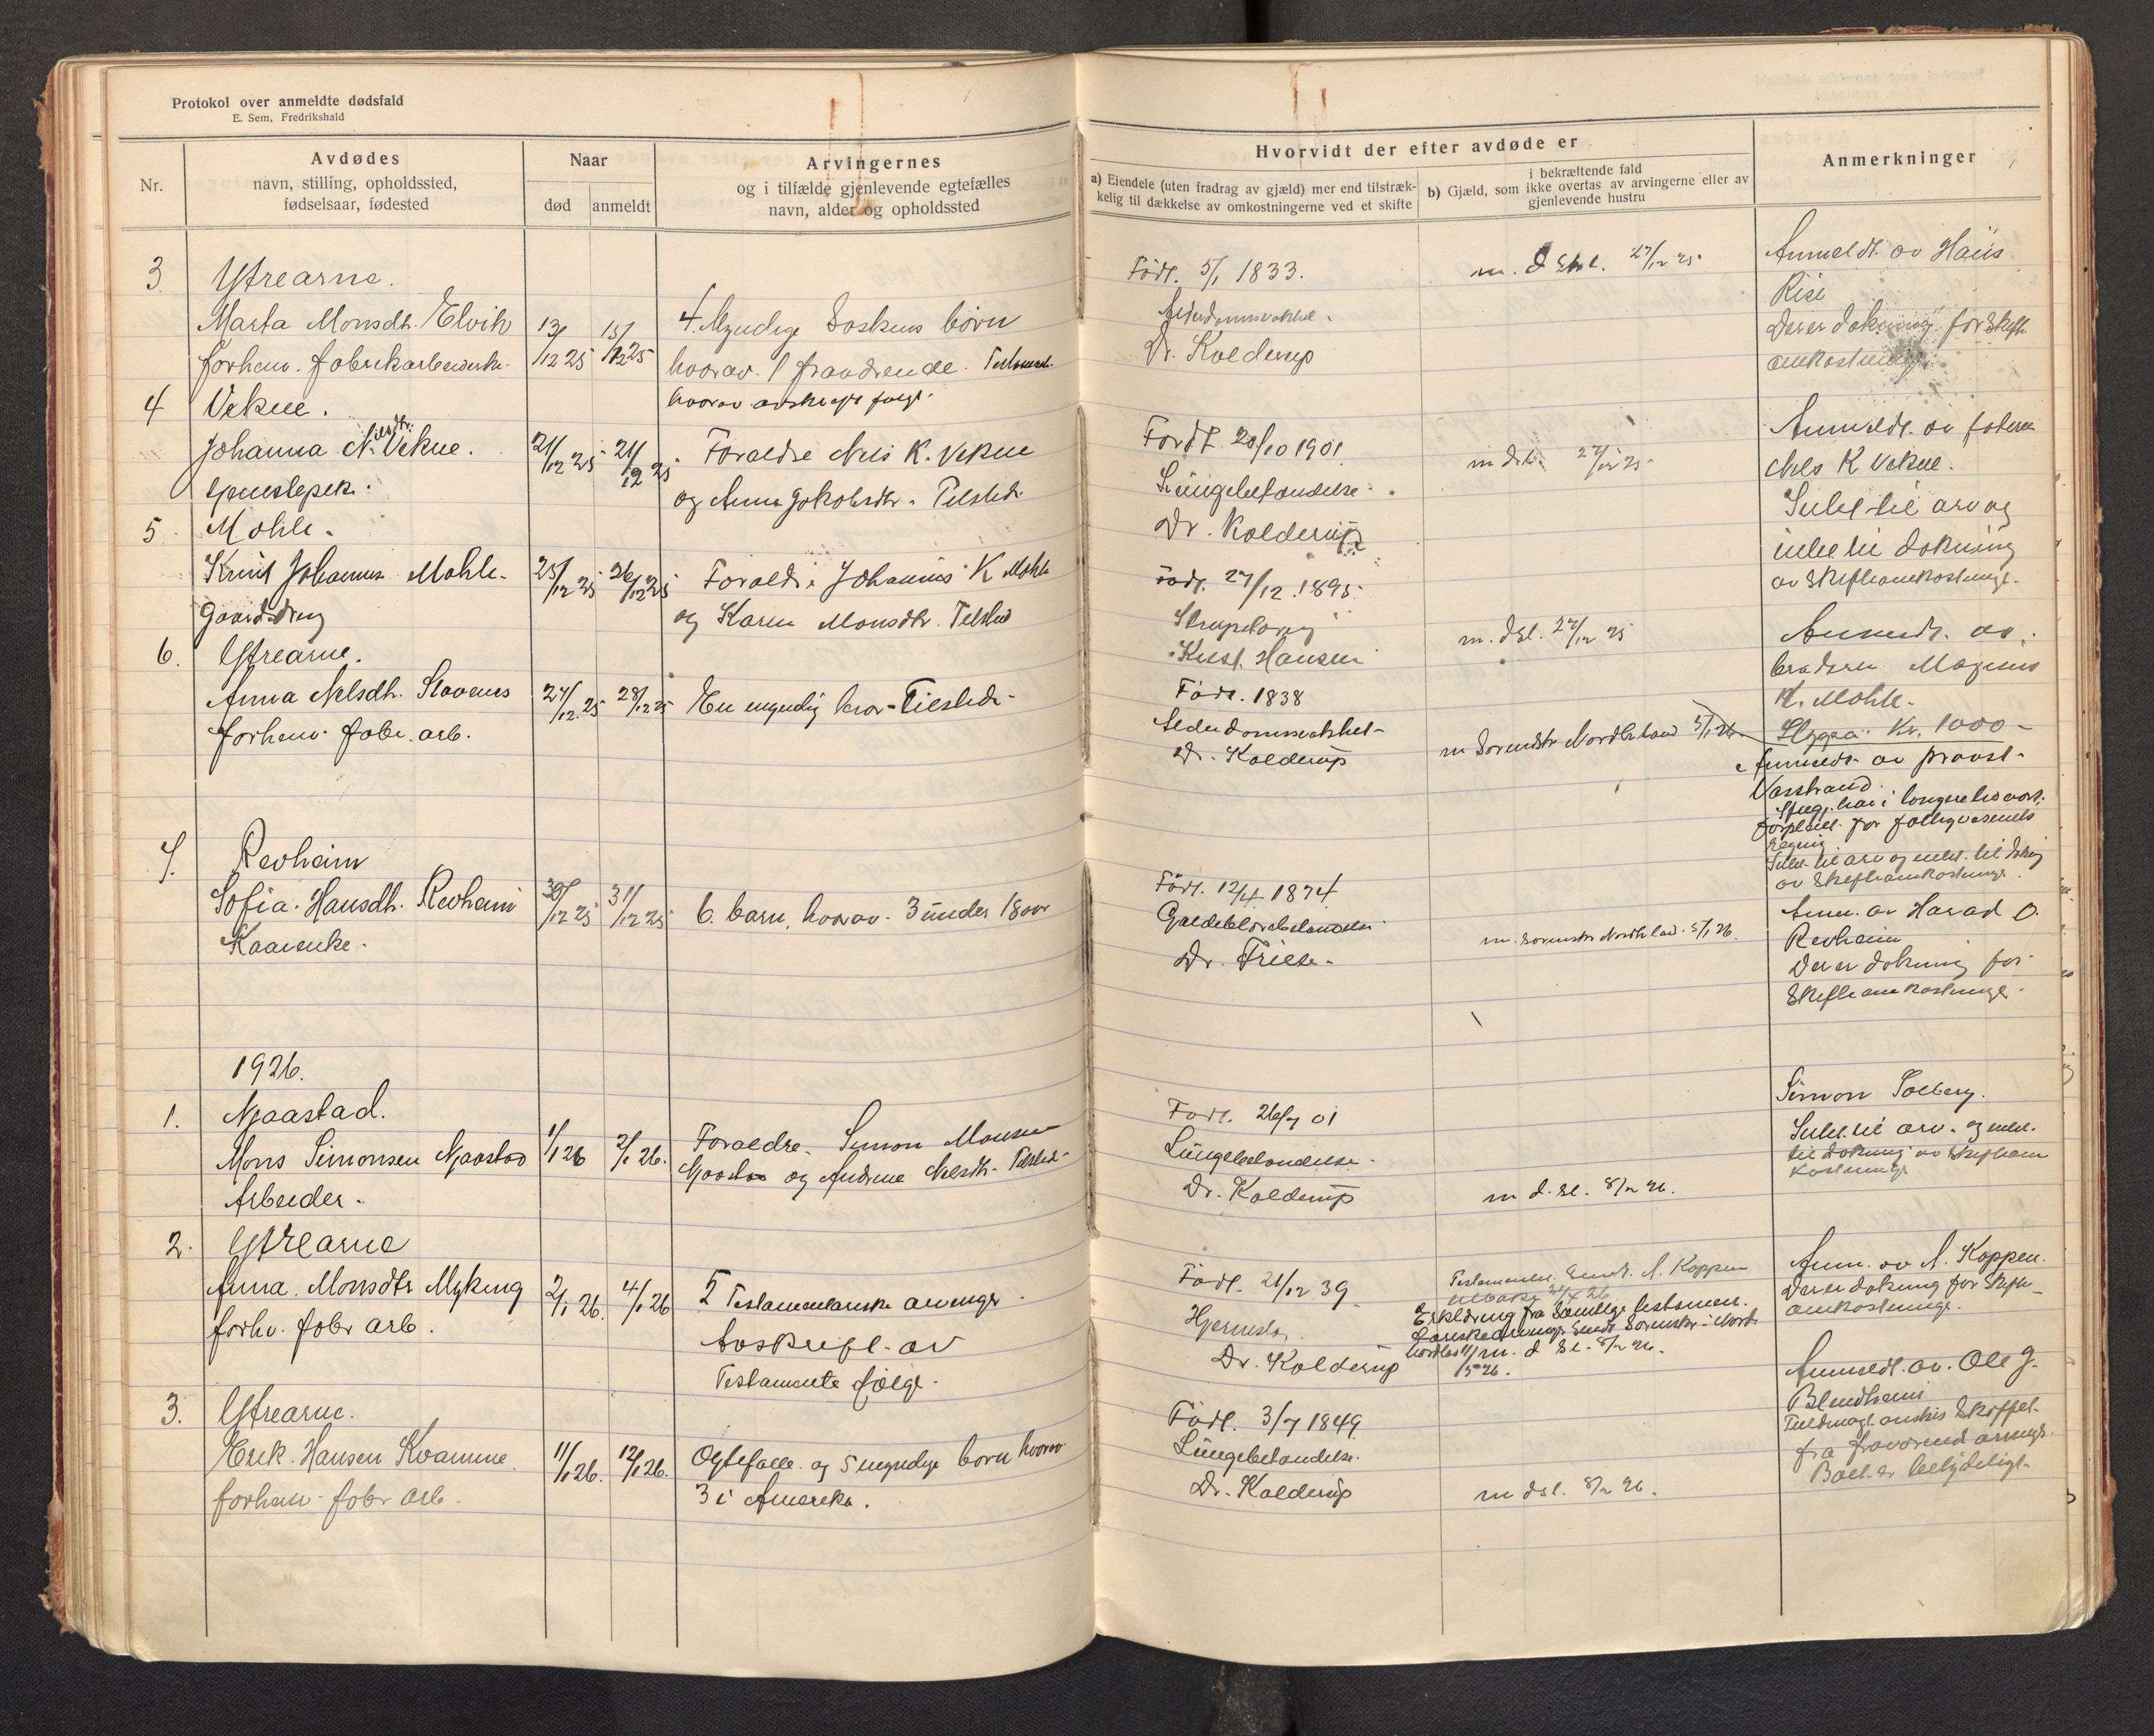 Protokol over anmeldte dødsfald
E. Sem, Fredrikshald
Nr.
Avdødes
navn, stilling, opholdssted,
fødselsaar, fødested
Naar
død
anmeldt
Arvingernes
og i tilfælde gjenlevende egtefælles
navn, alder og opholdssted
Hvorvidt der efter avdøde er
a) Eiendele (uten fradrag av gjæld) mer end tilstræk-
kelig til dækkelse av omkostningerne ved et skifte
i bekræftende fald
b) Gjæld, som ikke overtas av arvingerne eller av
gjenlevende hustru
Anmerkninger
3 Ytrearne.
Marta Monsdt. Elvik 13/12 25 15/12 25 4 Myndige Søskens børn
forhenv. fabrikarbeiderske. hvorav 1 fraværende.
hvorav avskrift følge.
Født. 5/1 1833.
Dr. Kolderup
27/12 25
Anmeldt av Hans
Rise
Der er dækning for skifte
omkostninger
4 Vekne.
Johanna Nilsdtr. Vekne. 21/12 25 21/12 25 Foraldre Nels K. Vekne
og Anna Jakobsdtr. Tilsteds
Født 20/10 1901
Lungebetændelse.
Dr. Kolderup
27/12 25
Anmeldt av faderen
Nels K Vekne.
Intet til arv og
intet til dækning
av skifteomkostninge.
5 Mohle.
Knut Johannes Mohle. 25/12 25 26/12 25 Foraldre Johannes K Mohle
Gaarddreng og Karen Monsdtr. Tilsted
Født. 27/12 1895.
Hansen
m. d sl. 27/12 25
Anmeldt. av
broderen Magnus
K. Mohle.
Kr. 1000-
6. Ytrearne.
Anna Nelsdt. Stavenes 27/12 25 28/12 25 En myndig bror - Tilsteds
forhenv. fabr. arb.
Født. 1838
Alderdomssvakhet-
Dr. Kolderup
5/1 26
Anmeldt av provst
Vasstrand.
har i længere tid vært
for fattigvæsenets
regning
Intet til arv og intet til dækning
av skifteomkostninge.
7. Revheim
Sofia. Hansdt. Revheim 30/12 25 31/12 25 6. barn, hvorav. 3 under 18 aar
Kaarenke.
Født. 12/4 1874
Dr. Friele.
5/1 26.
Anm. av Harad O.
Revheim
Der er dækning for
skifteomkostninge.
1926.
1. Njaastad.
Mons Simonsen Njaastad 1/1 26 2/1 26. Foraldre. Simon Monsen
Njaastad og Andrine Nelsdt. Tilsteds.
Arbeider.
Født. 26/7 01
Lungebetændelse.
Dr. Kolderup
m d. sl. 8/2 26.
Simon Solberg.
Intet til arv. og intet.
til dækning av skifteom
kostninge
2. Ytrearne
Anna. Monsdtr Myking 2/1 26. 4/1 26 5 Testamentariske arvinger.
forhv. fabr arb. Avskrift. av
Testamente følge.
Født. 21/12 39.
Hjerneslag.
Dr. Kolderup
Testamentet. Sendt. A. Koppen
Erklæring fra samtlige testamen.
m. d sl. 8/2 26.
Anm. av A. Koppen.
Der er dækning for skifte
omkostninge.
3. Ytrearne.
Erik. Hansen Kvamme. 11/1 26. 12/1 26. Egtefælle og 5 myndige børn hvorav
forhenv. fabr arb. 3 i Amerika.
Født. 3/7 1849
Lungebetændelse.
Dr. Kolderup
m dsl. 8/2 26.
Anmeldt. av. Ole J.
Blindheim
Fuldmagt ønskes skaffet.
fra fraværende arvinge.
Boet. er ubetydeligt.